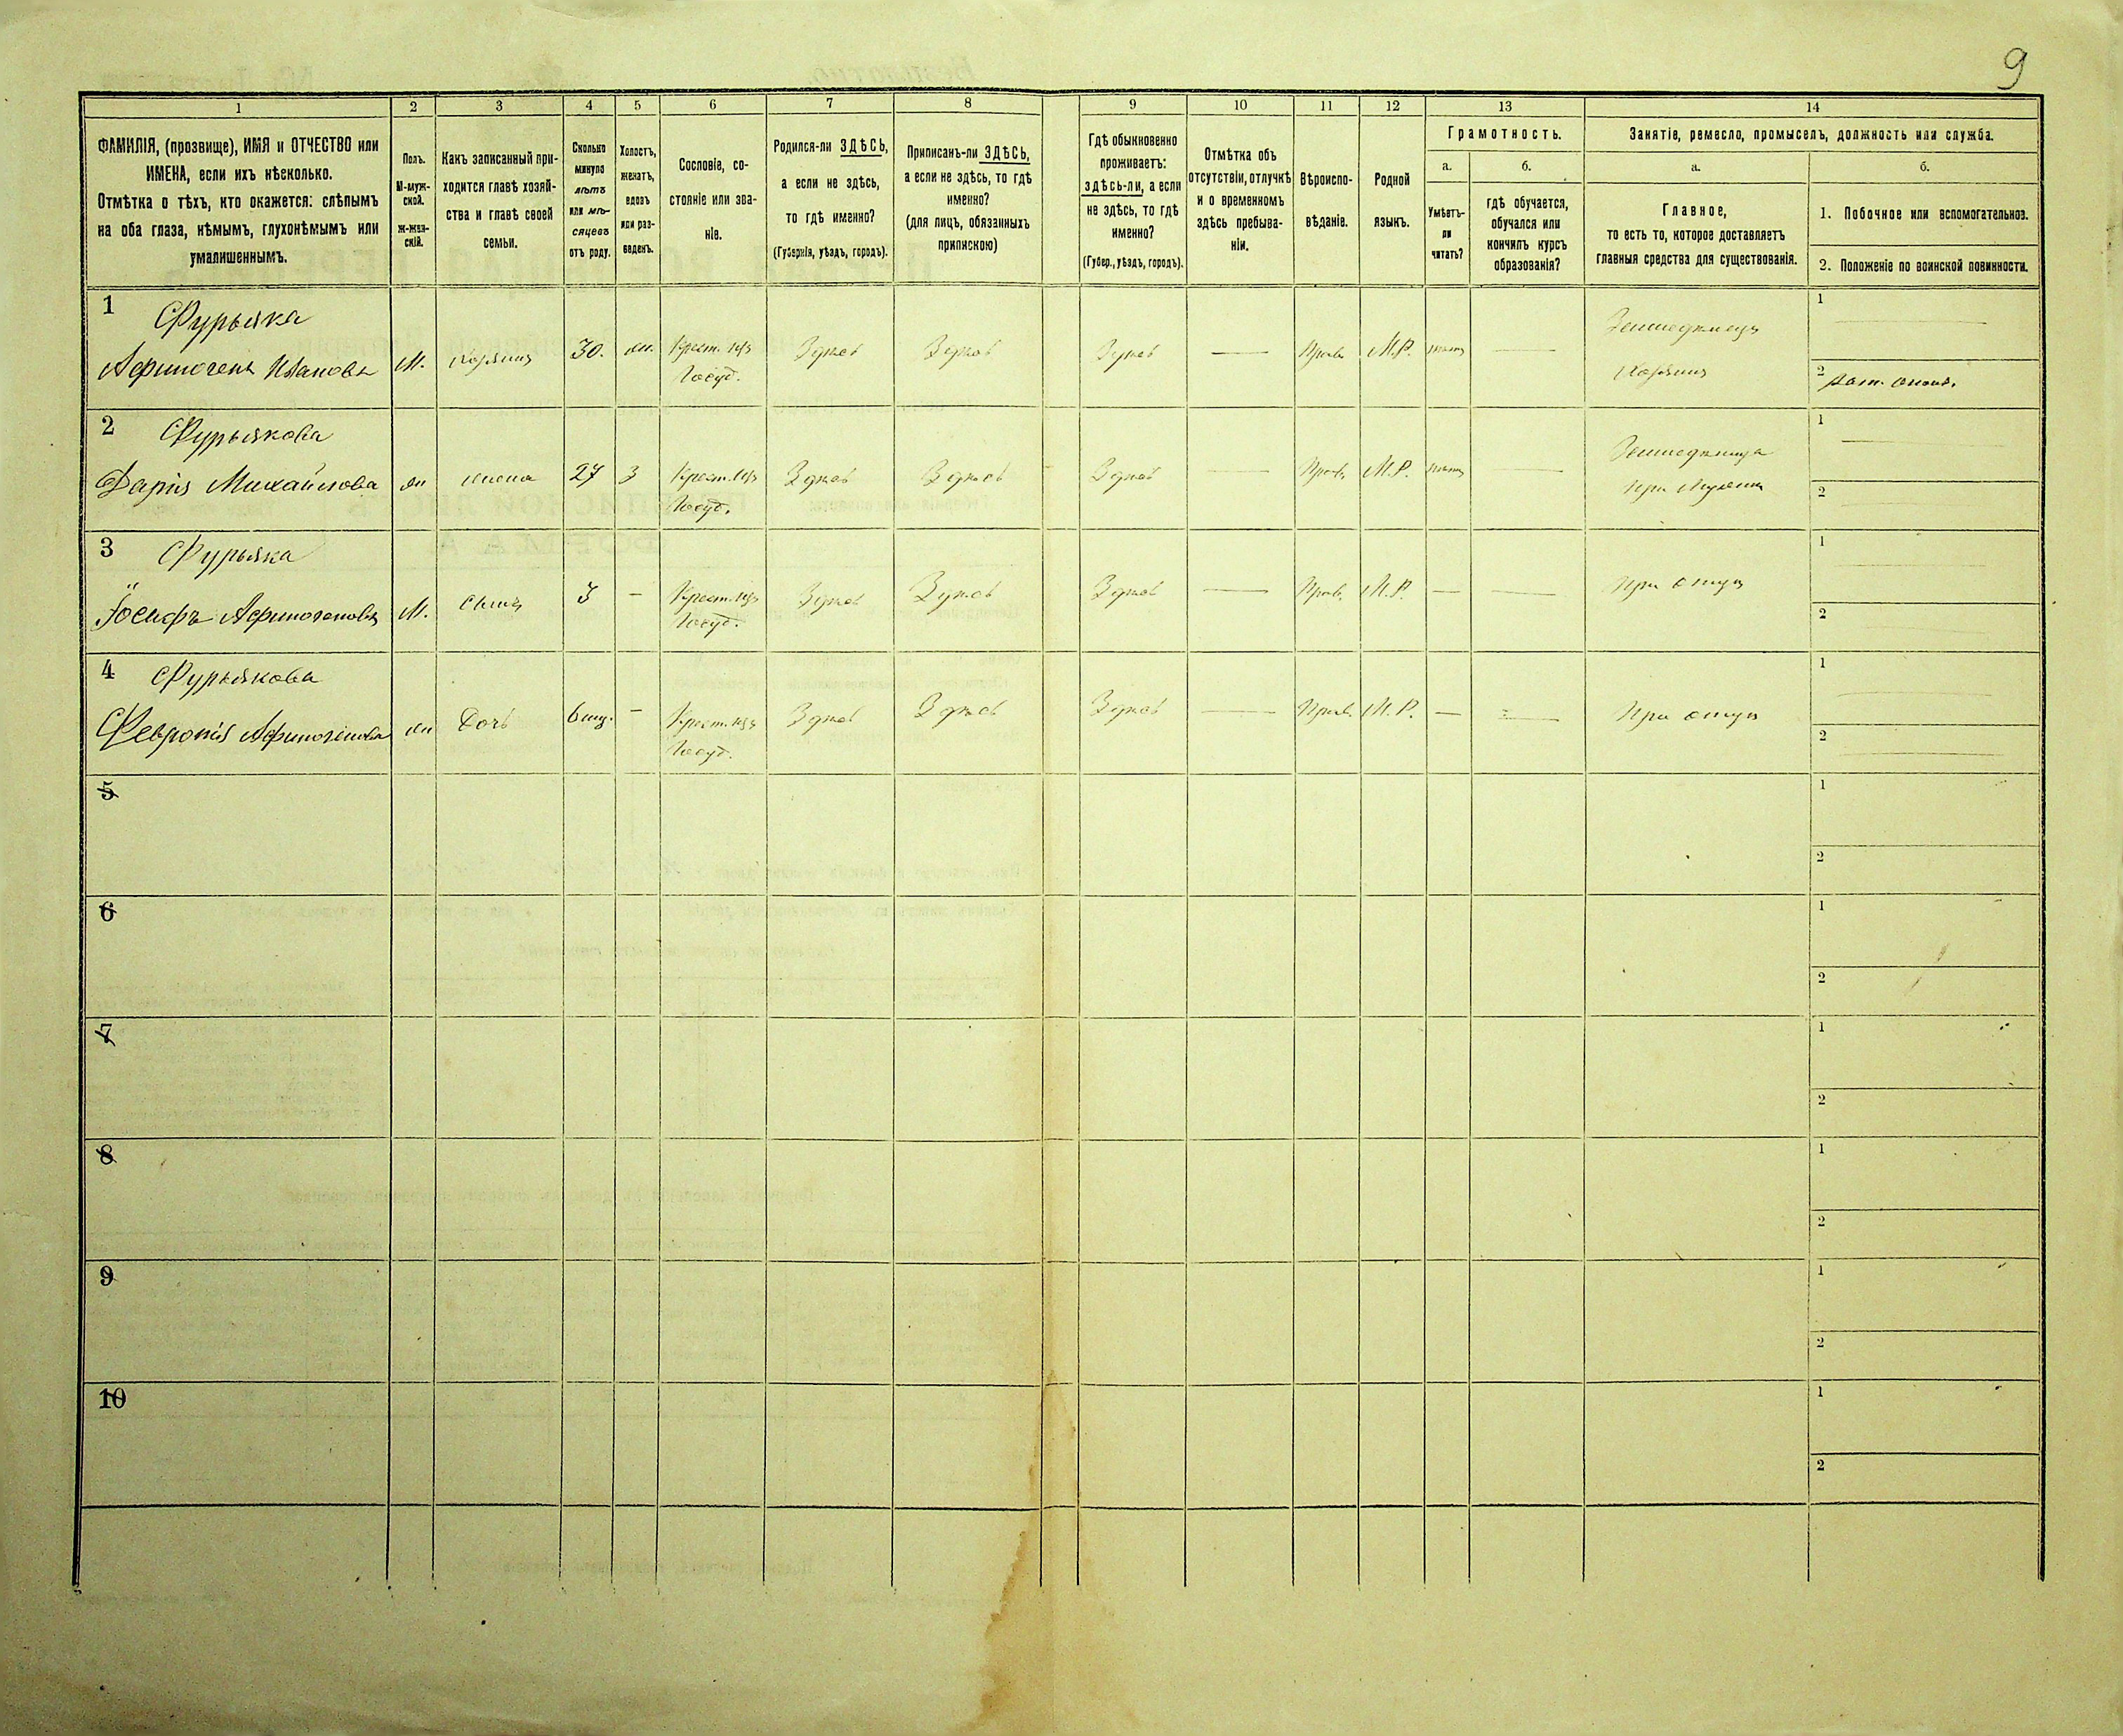 9
1 2 3 4 5 6 7 8 9 10 11 12 13 14
ФАМИЛІЯ, (прозвище), ИМЯ и ОТЧЕСТВО или
ИМЕНА, если ихъ нѣсколько.
Отмѣтка о тѣхъ, кто окажется: слѣпымъ
на оба глаза, нѣмымъ, глухонѣмымъ или
умалишеннымъ.
Полъ.
М-муж-
ской.
ж-жен-
скій.
Какъ записанный при-
ходится главѣ хозяй-
ства и главѣ своей
семьи.
Сколько
минуло
лѣтъ
или мѣ-
сяцевъ
отъ роду.
Холостъ,
женатъ,
вдовъ
или раз-
веденъ.
Сословіе, со-
стояніе или зва-
ніе.
Родился-ли ЗДѢСЬ,
а если не здѣсь,
то гдѣ именно?
(Губернія, уѣздъ, городъ).
Приписанъ-ли ЗДѢСЬ,
а если не здѣсь, то гдѣ
именно?
(для лицъ, обязанныхъ
припискою)
Гдѣ обыкновенно
проживаетъ:
здѣсь-ли, а если
не здѣсь, то гдѣ
именно?
(Губер., уѣздъ, городъ).
Отмѣтка объ
отсутствіи, отлучкѣ
и о временномъ
здѣсь пребыва-
ніи.
Вѣроиспо-
вѣданіе.
Родной
языкъ.
Грамотность.
а.
Умѣетъ-
ли
читать?
б.
гдѣ обучается,
обучался или
кончилъ курсъ
образованія?
Занятіе, ремесло, промыселъ, должность или служба.
а.
Главное,
то есть то, которое доставляетъ
главныя средства для существованія.
б.
1. Побочное или вспомогательное.
2. Положеніе по воинской повинности.
1 Фурыяка
Афиногенъ Ивановъ М. хозяинъ 30. ж. Крест. изъ Здѣсь Здѣсь Здѣсь — Прав. М.Р. нѣтъ — Земледѣлецъ
Госуд. хозяинъ
1
2
2 Фурыякова
Дарія Михайлова ж жена 27 З Крест. изъ Здѣсь Здѣсь Здѣсь — Прав. М.Р. нѣтъ — Земледѣлица
Госуд. при мужѣ
1
2
3 Фурыяка
Іосифъ Афиногеновъ М. сынъ 3 - Крест. изъ Здѣсь Здѣсь Здѣсь — Прав. М.Р. — — При отцѣ
Госуд.
1
2
4 Фурыякова
Февронія Афиногенова ж Дочь 6 мѣ. - Крест. изъ Здѣсь Здѣсь Здѣсь — Прав. М.Р. — — При отцѣ
Госуд.
1
2
5
1
2
6
1
2
7
1
2
8
1
2
9
1
2
10
1
2